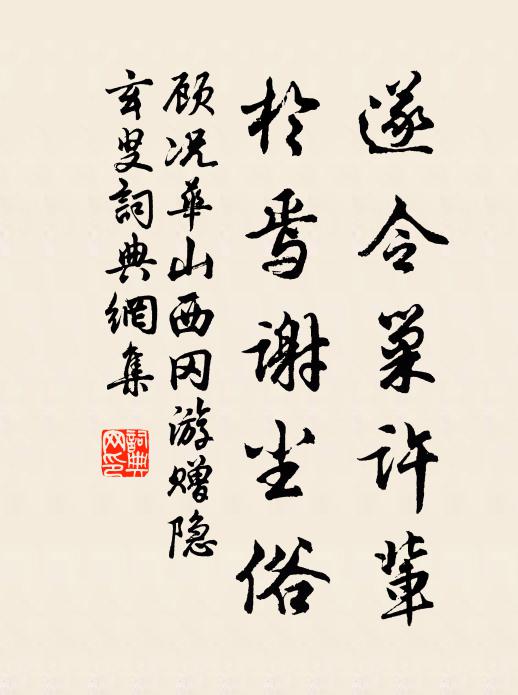 遂令巢许辈
於焉谢尘俗
顾况华山西冈游赠隐
玄叟詞典網集
詞典网印